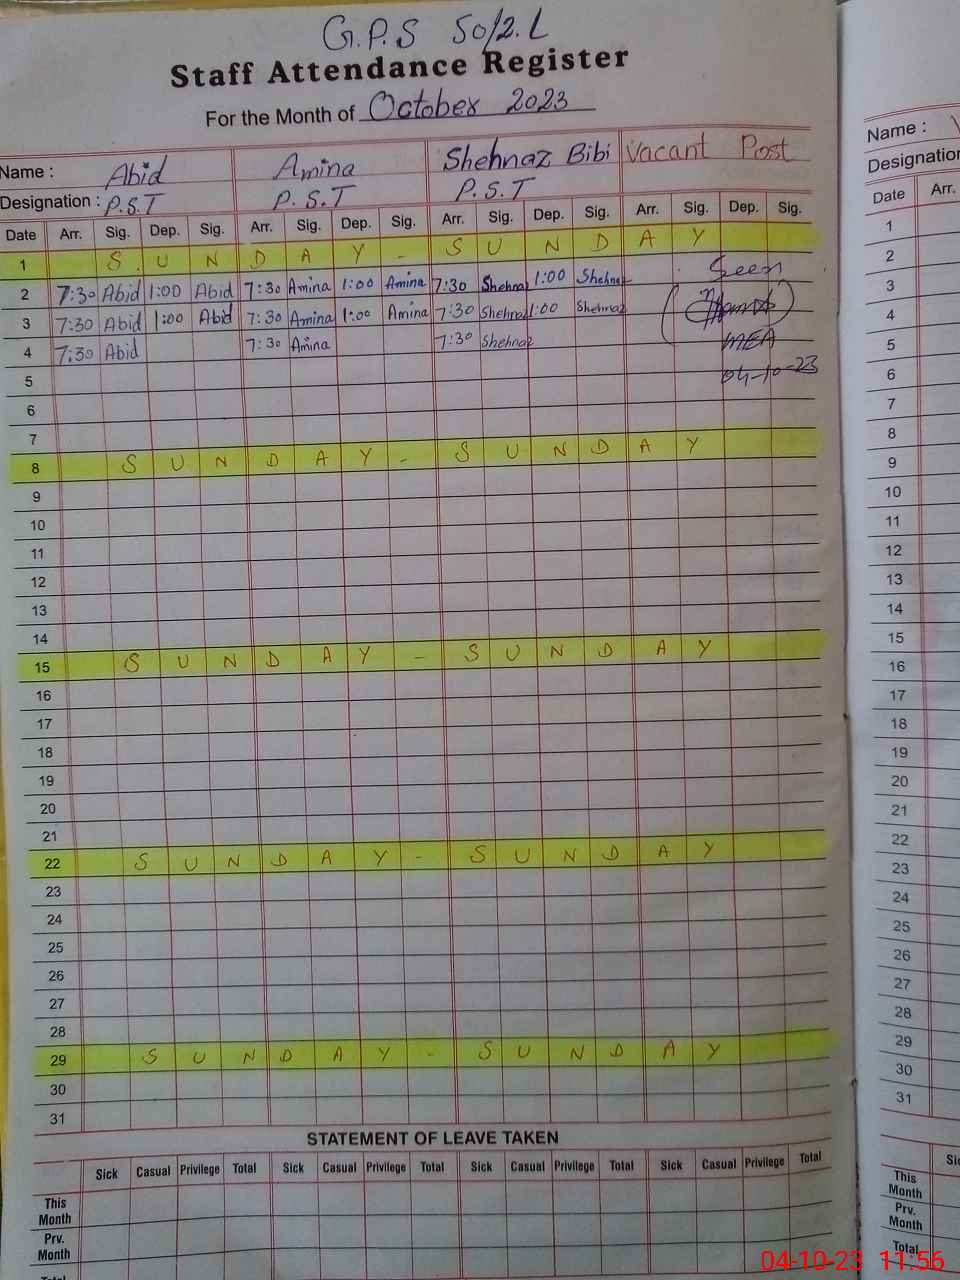 G.P.S 50/2.L
Staff Attendance Register
For the Month of October 2023
Name : Abid Amina Shehnaz Bibi Vacant Post
Designation : P.S.T P.S.T P.S.T
Date Arr. Sig. Dep. Sig. Arr. Sig. Dep. Sig. Arr. Sig. Dep. Sig. Arr. Sig. Dep. Sig.
1 S U N D A Y - S U N D A Y
2 7:30 Abid 1:00 Abid 7:30 Amina 1:00 Amina 7:30 Shehnaz 1:00 Shehnaz Seen
3 7:30 Abid 1:00 Abid 7:30 Amina 1:00 Amina 7:30 Shehnaz 1:00 Shehnaz
4 7:30 Abid 7:30 Amina 7:30 Shehnaz MEA
5 04-10-23
6
7
8 S U N D A Y - S U N D A Y
9
10
11
12
13
14
15 S U N D A Y - S U N D A Y
16
17
18
19
20
21
22 S U N D A Y - S U N D A Y
23
24
25
26
27
28
29 S U N D A Y - S U N D A Y
30
31
STATEMENT OF LEAVE TAKEN
Sick Casual Privilege Total Sick Casual Privilege Total Sick Casual Privilege Total Sick Casual Privilege Total
This Month
Prv. Month
Total
Name :
Designation
Date Arr.
1
2
3
4
5
6
7
8
9
10
11
12
13
14
15
16
17
18
19
20
21
22
23
24
25
26
27
28
29
30
31
This Month
Prv. Month
Total
04-10-23 11:56